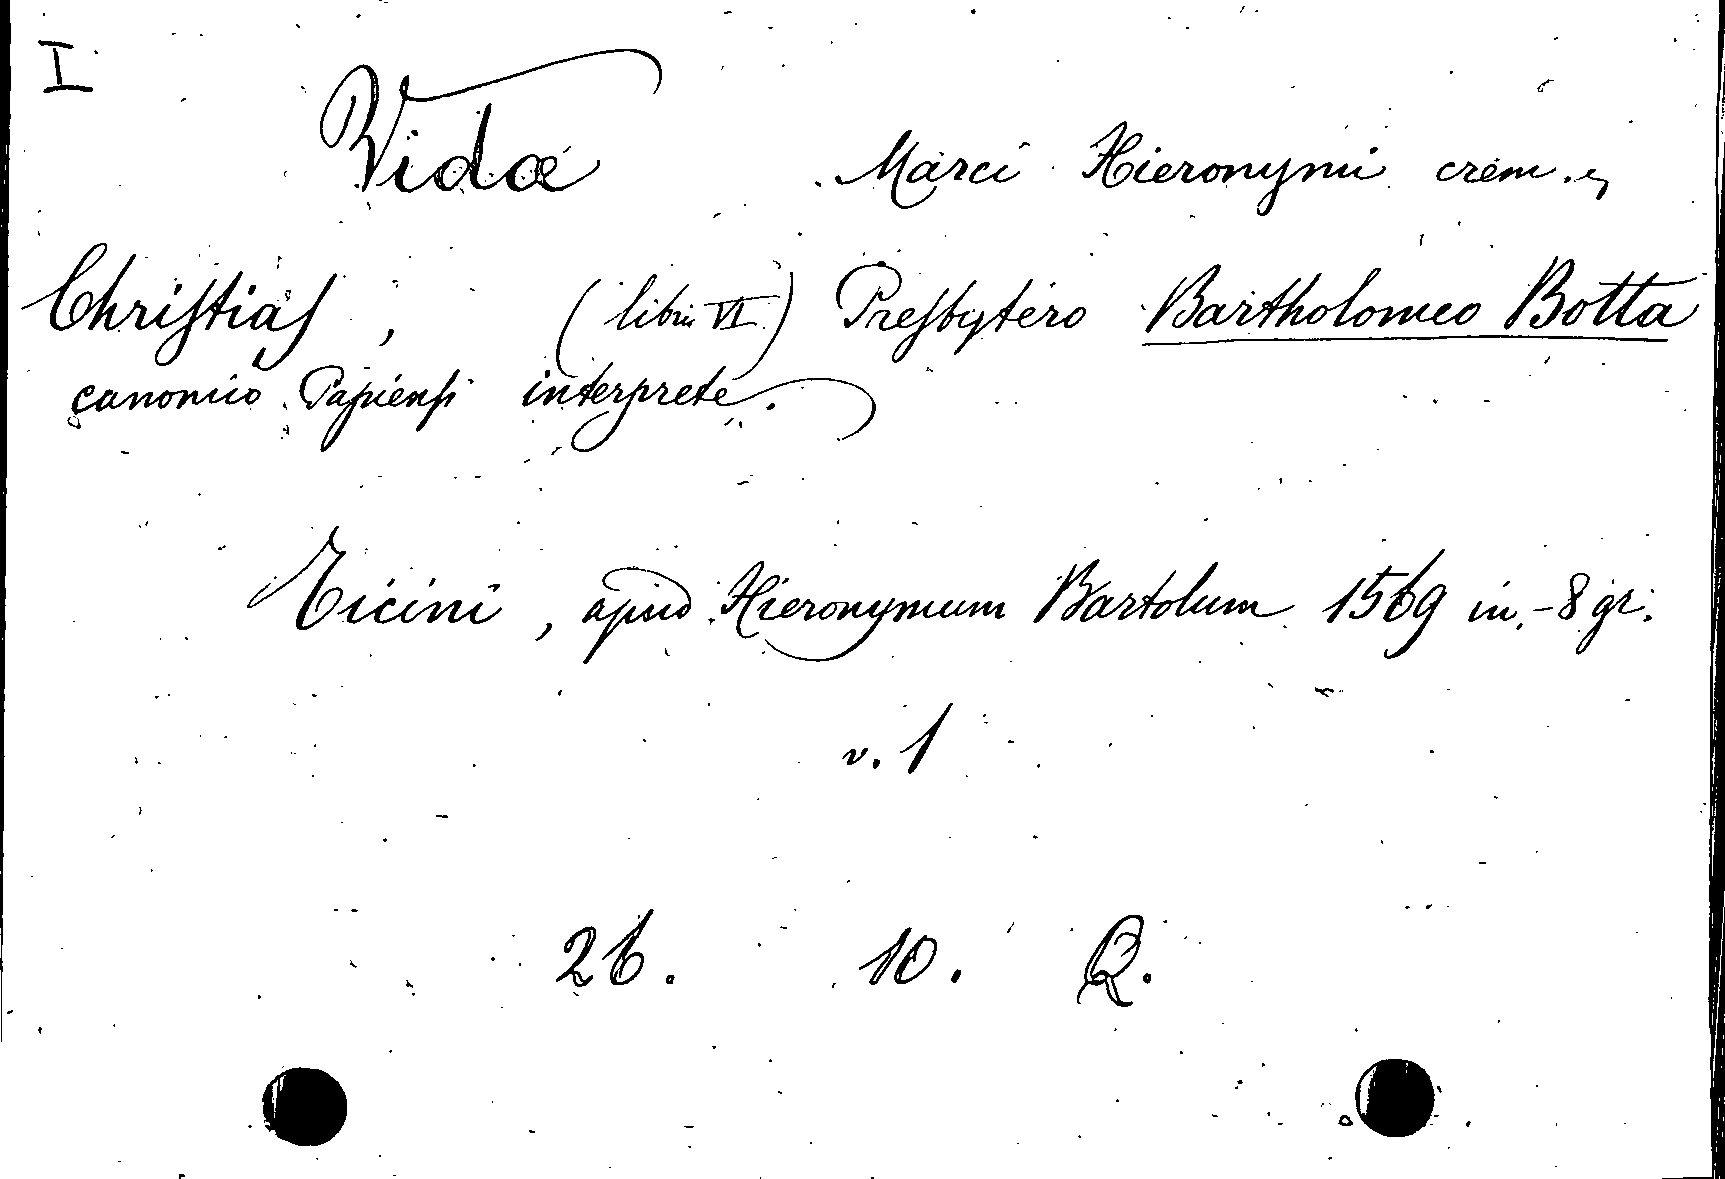 I
Vidæ Marci Hieronymi crem.
Christias, (libri VI) Presbytero Bartholomeo Botta
canonico Papiensi interprete.
Ticini, apud Hieronymum Bartolum 1569 in-8 gr.
v. 1
26. 10. Q.